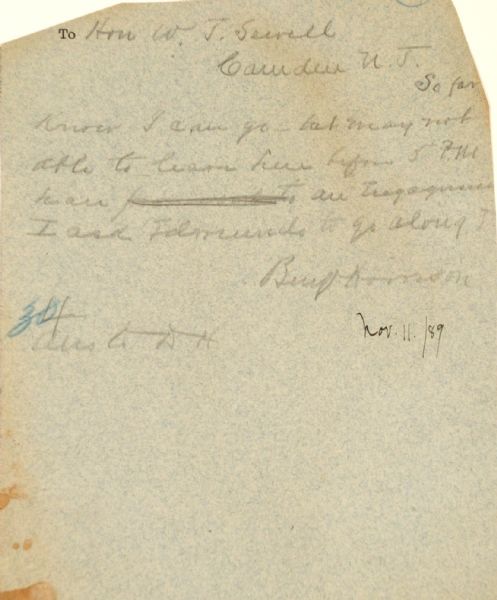 To Hon W. J. Sewell
Camden N. J.
So far
know I can go - but may not
able to leave here before 5 PM
have to an Engagement
I ask Edmunds to go along
Benj Harrison
Nov. 11. /89
D H